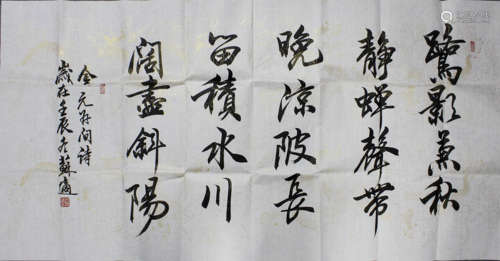 鷺影兼秋
静蝉聲帶
晚涼陂長
留積水川
阔盡斜陽
金元好问詩
歲在壬辰冬蘇